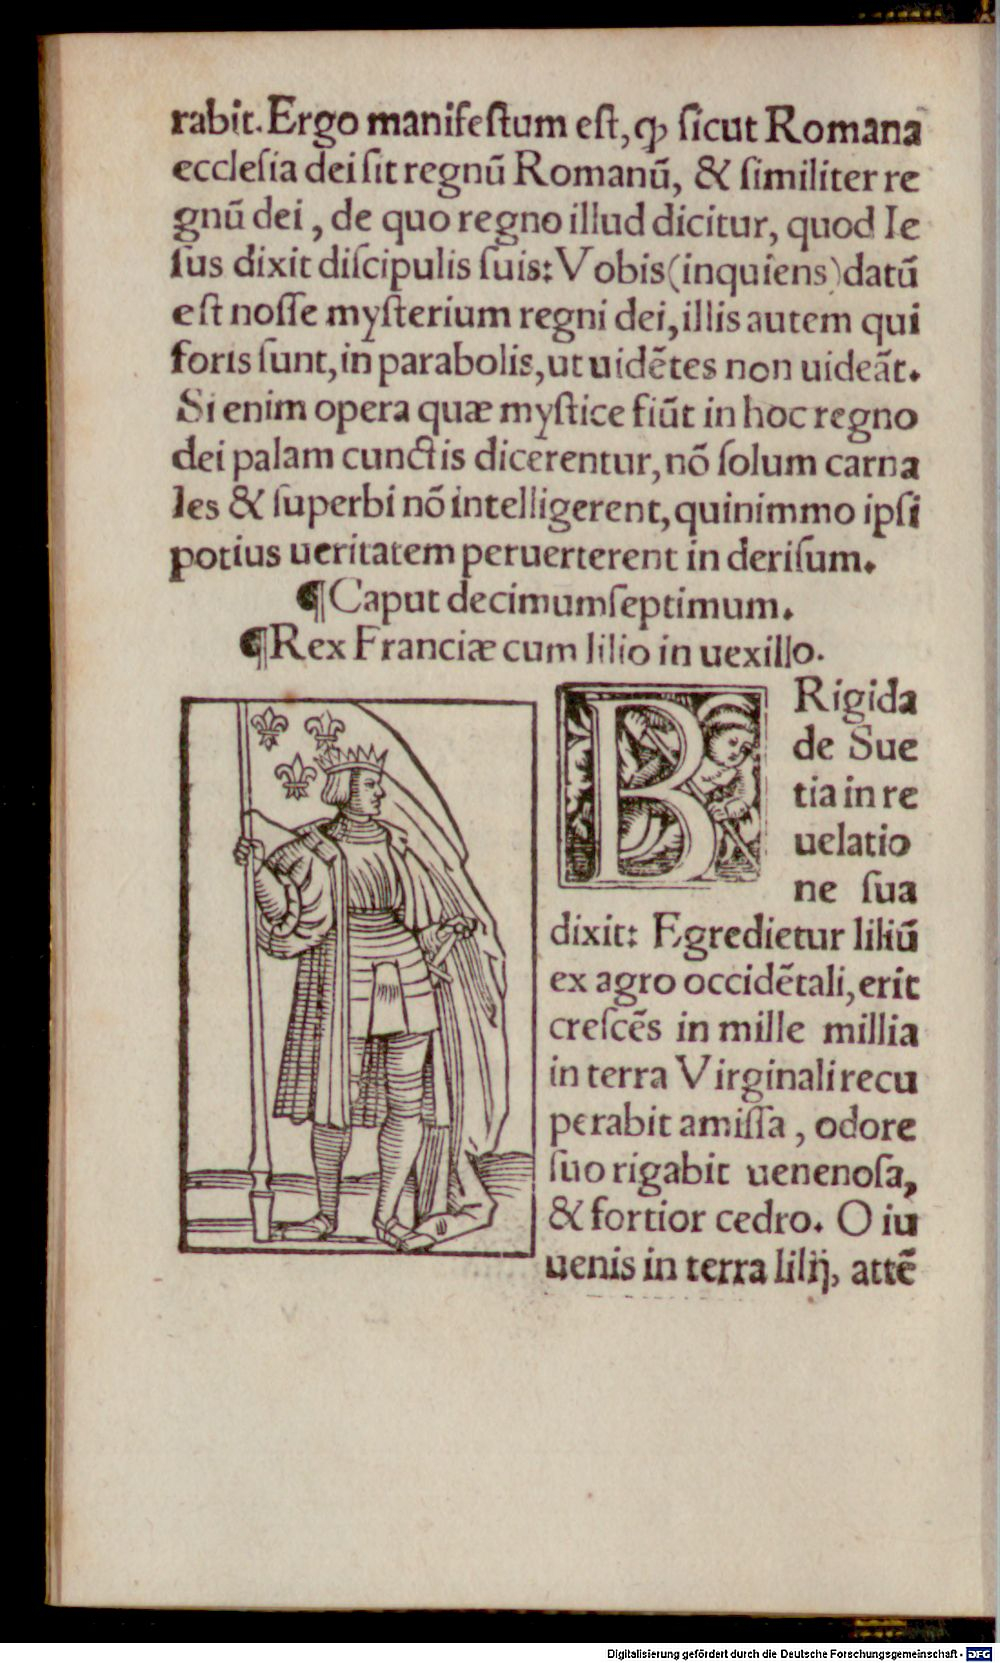 rabit. Ergo manifeſtum eſt, ꝙ ſicut Romana
eccleſia dei ſit regnũ Romanũ, & ſimiliter re
gnũ dei, de quo regno illud dicitur, quod Ie
ſus dixit diſcipulis ſuis: Vobis (inquiens) datũ
eſt noſſe myſterium regni dei, illis autem qui
foris ſunt, in parabolis, ut uidẽtes non uideãt.
Si enim opera quæ myſtice fiũt in hoc regno
dei palam cunctis dicerentur, nõ ſolum carna
les & ſuperbi nõ intelligerent, quinimmo ipſi
potius ueritatem peruerterent in deriſum.
¶Caput decimumſeptimum.
¶Rex Franciæ cum lilio in uexillo.
BRigida
de Sue
tia in re
uelatio
ne ſua
dixit: Egredietur liliũ
ex agro occidẽtali, erit
creſcẽs in mille millia
in terra Virginali recu
perabit amiſſa, odore
ſuo rigabit uenenoſa,
& fortior cedro. O iu
uenis in terra lilij, attẽ
Digitalisierung gefördert durch die Deutsche Forschungsgemeinschaft - DFG